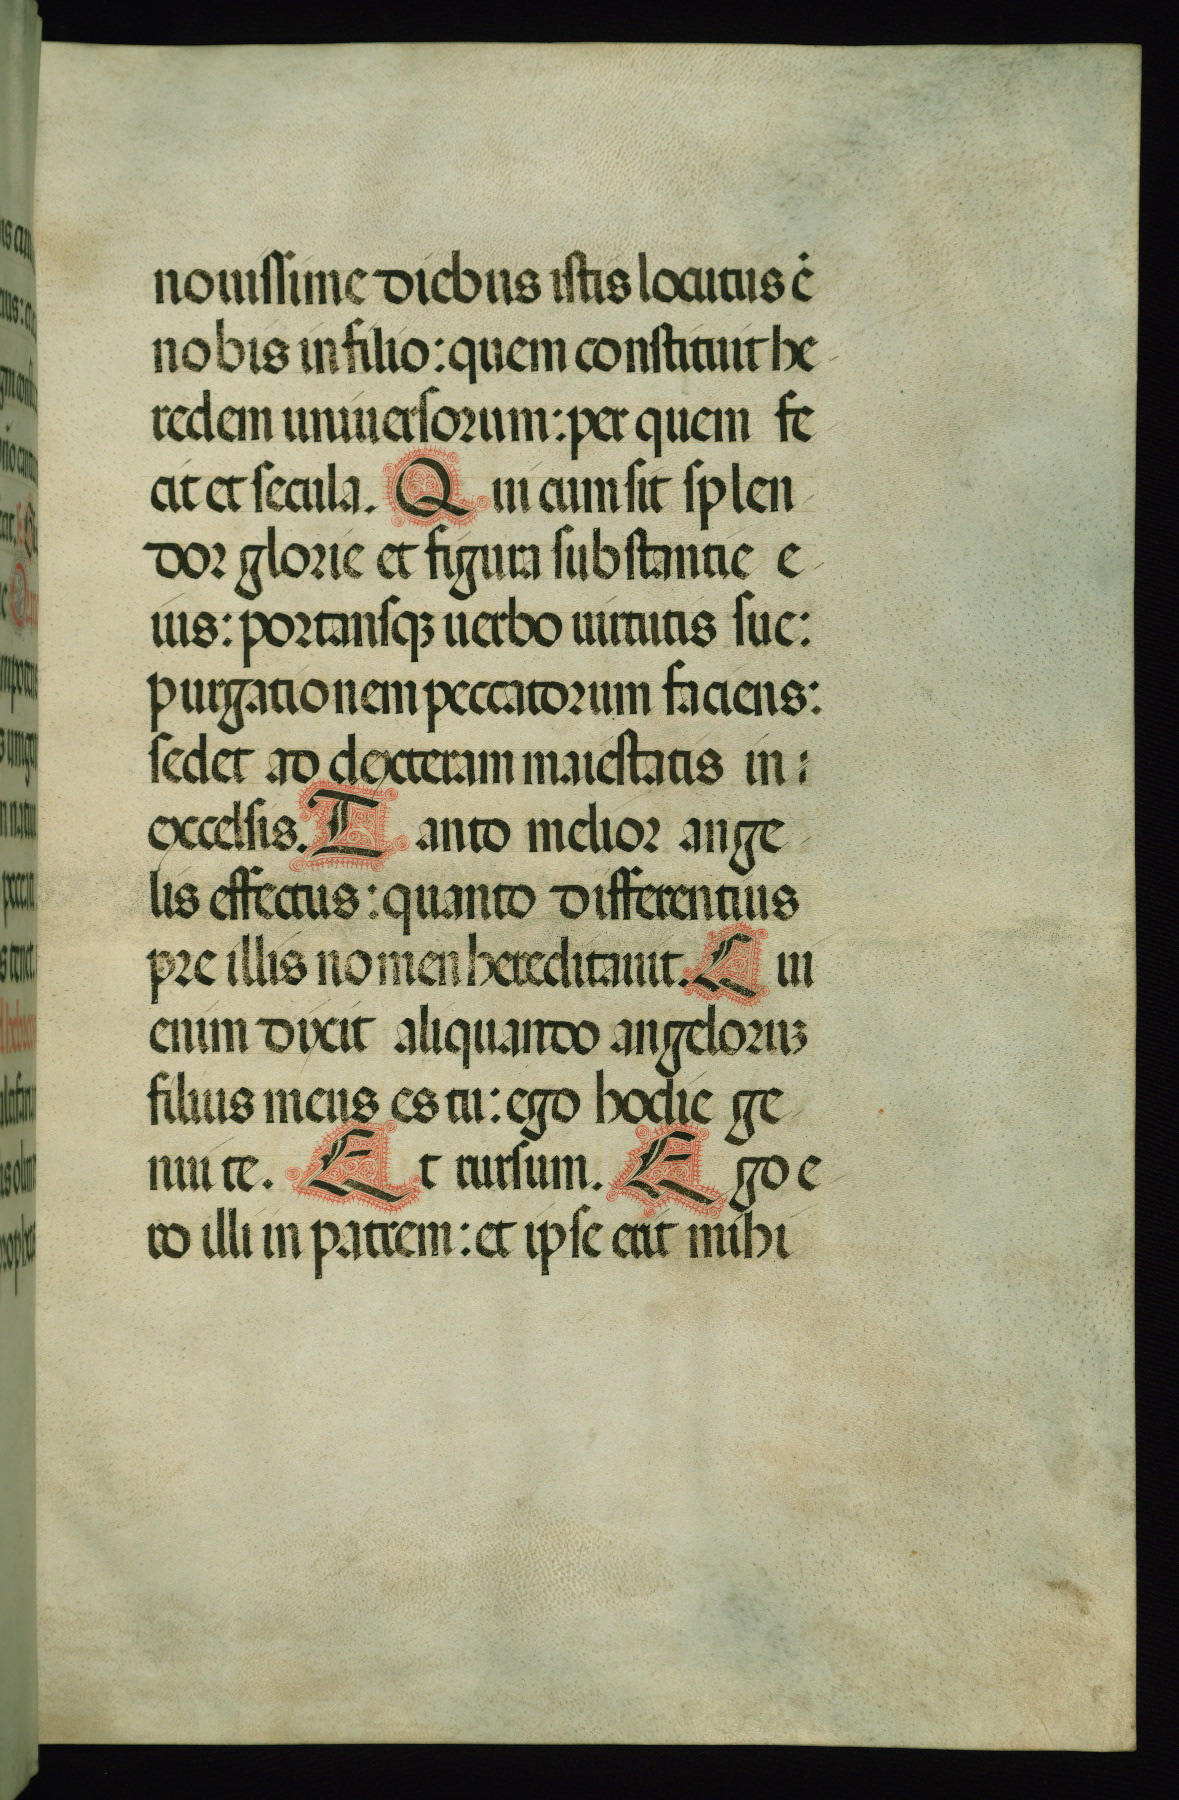 nouissime diebus istis locutus ē
nobis in filio: quem constituit he
redem uniuersorum: per quem fe
cit et secula. Qui cum sit splen
dor glorie et figura substantie e
ius: portansqꝫ uerbo uirtutis sue:
purgationem peccatorum faciens:
sedet ad dexteram maiestatis in:
excelsis. Tanto melior ange
lis effectus: quanto differentius
pre illis nomen hereditauit. Cui
enim dixit aliquando angeloruꝫ
filius meus es tu: ego hodie ge
nui te. Et rursum. Ego e
ro illi in patrem: et ipse erit mihi